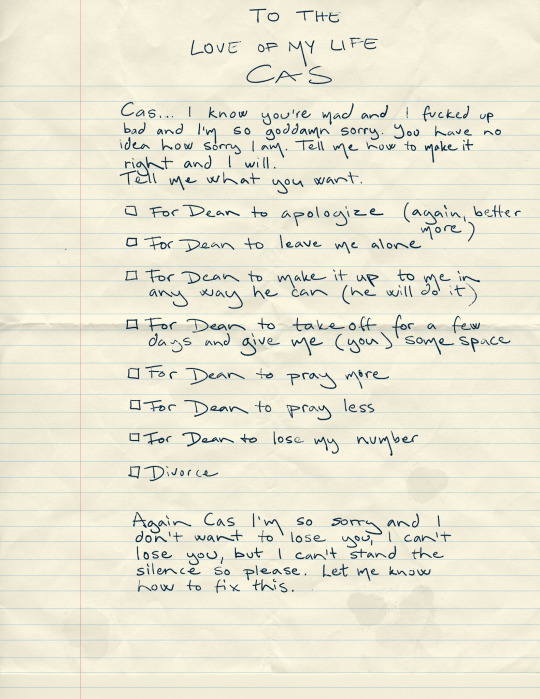 TO THE
LOVE OF MY LIFE
CAS
Cas... I know you're mad and I fucked up
bad and I'm so goddamn sorry. You have no
idea how sorry I am. Tell me how to make it
right and I will.
Tell me what you want.
☐ For Dean to apologize (again, better
more)
☐ For Dean to leave me alone
☐ For Dean to make it up to me in
any way he can (he will do it)
☐ For Dean to take off for a few
days and give me (you) some space
☐ For Dean to pray more
☐ For Dean to pray less
☐ For Dean to lose my number
☐ Divorce
Again Cas I'm so sorry and I
don't want to lose you, I can't
lose you, but I can't stand the
silence so please. Let me know
how to fix this.